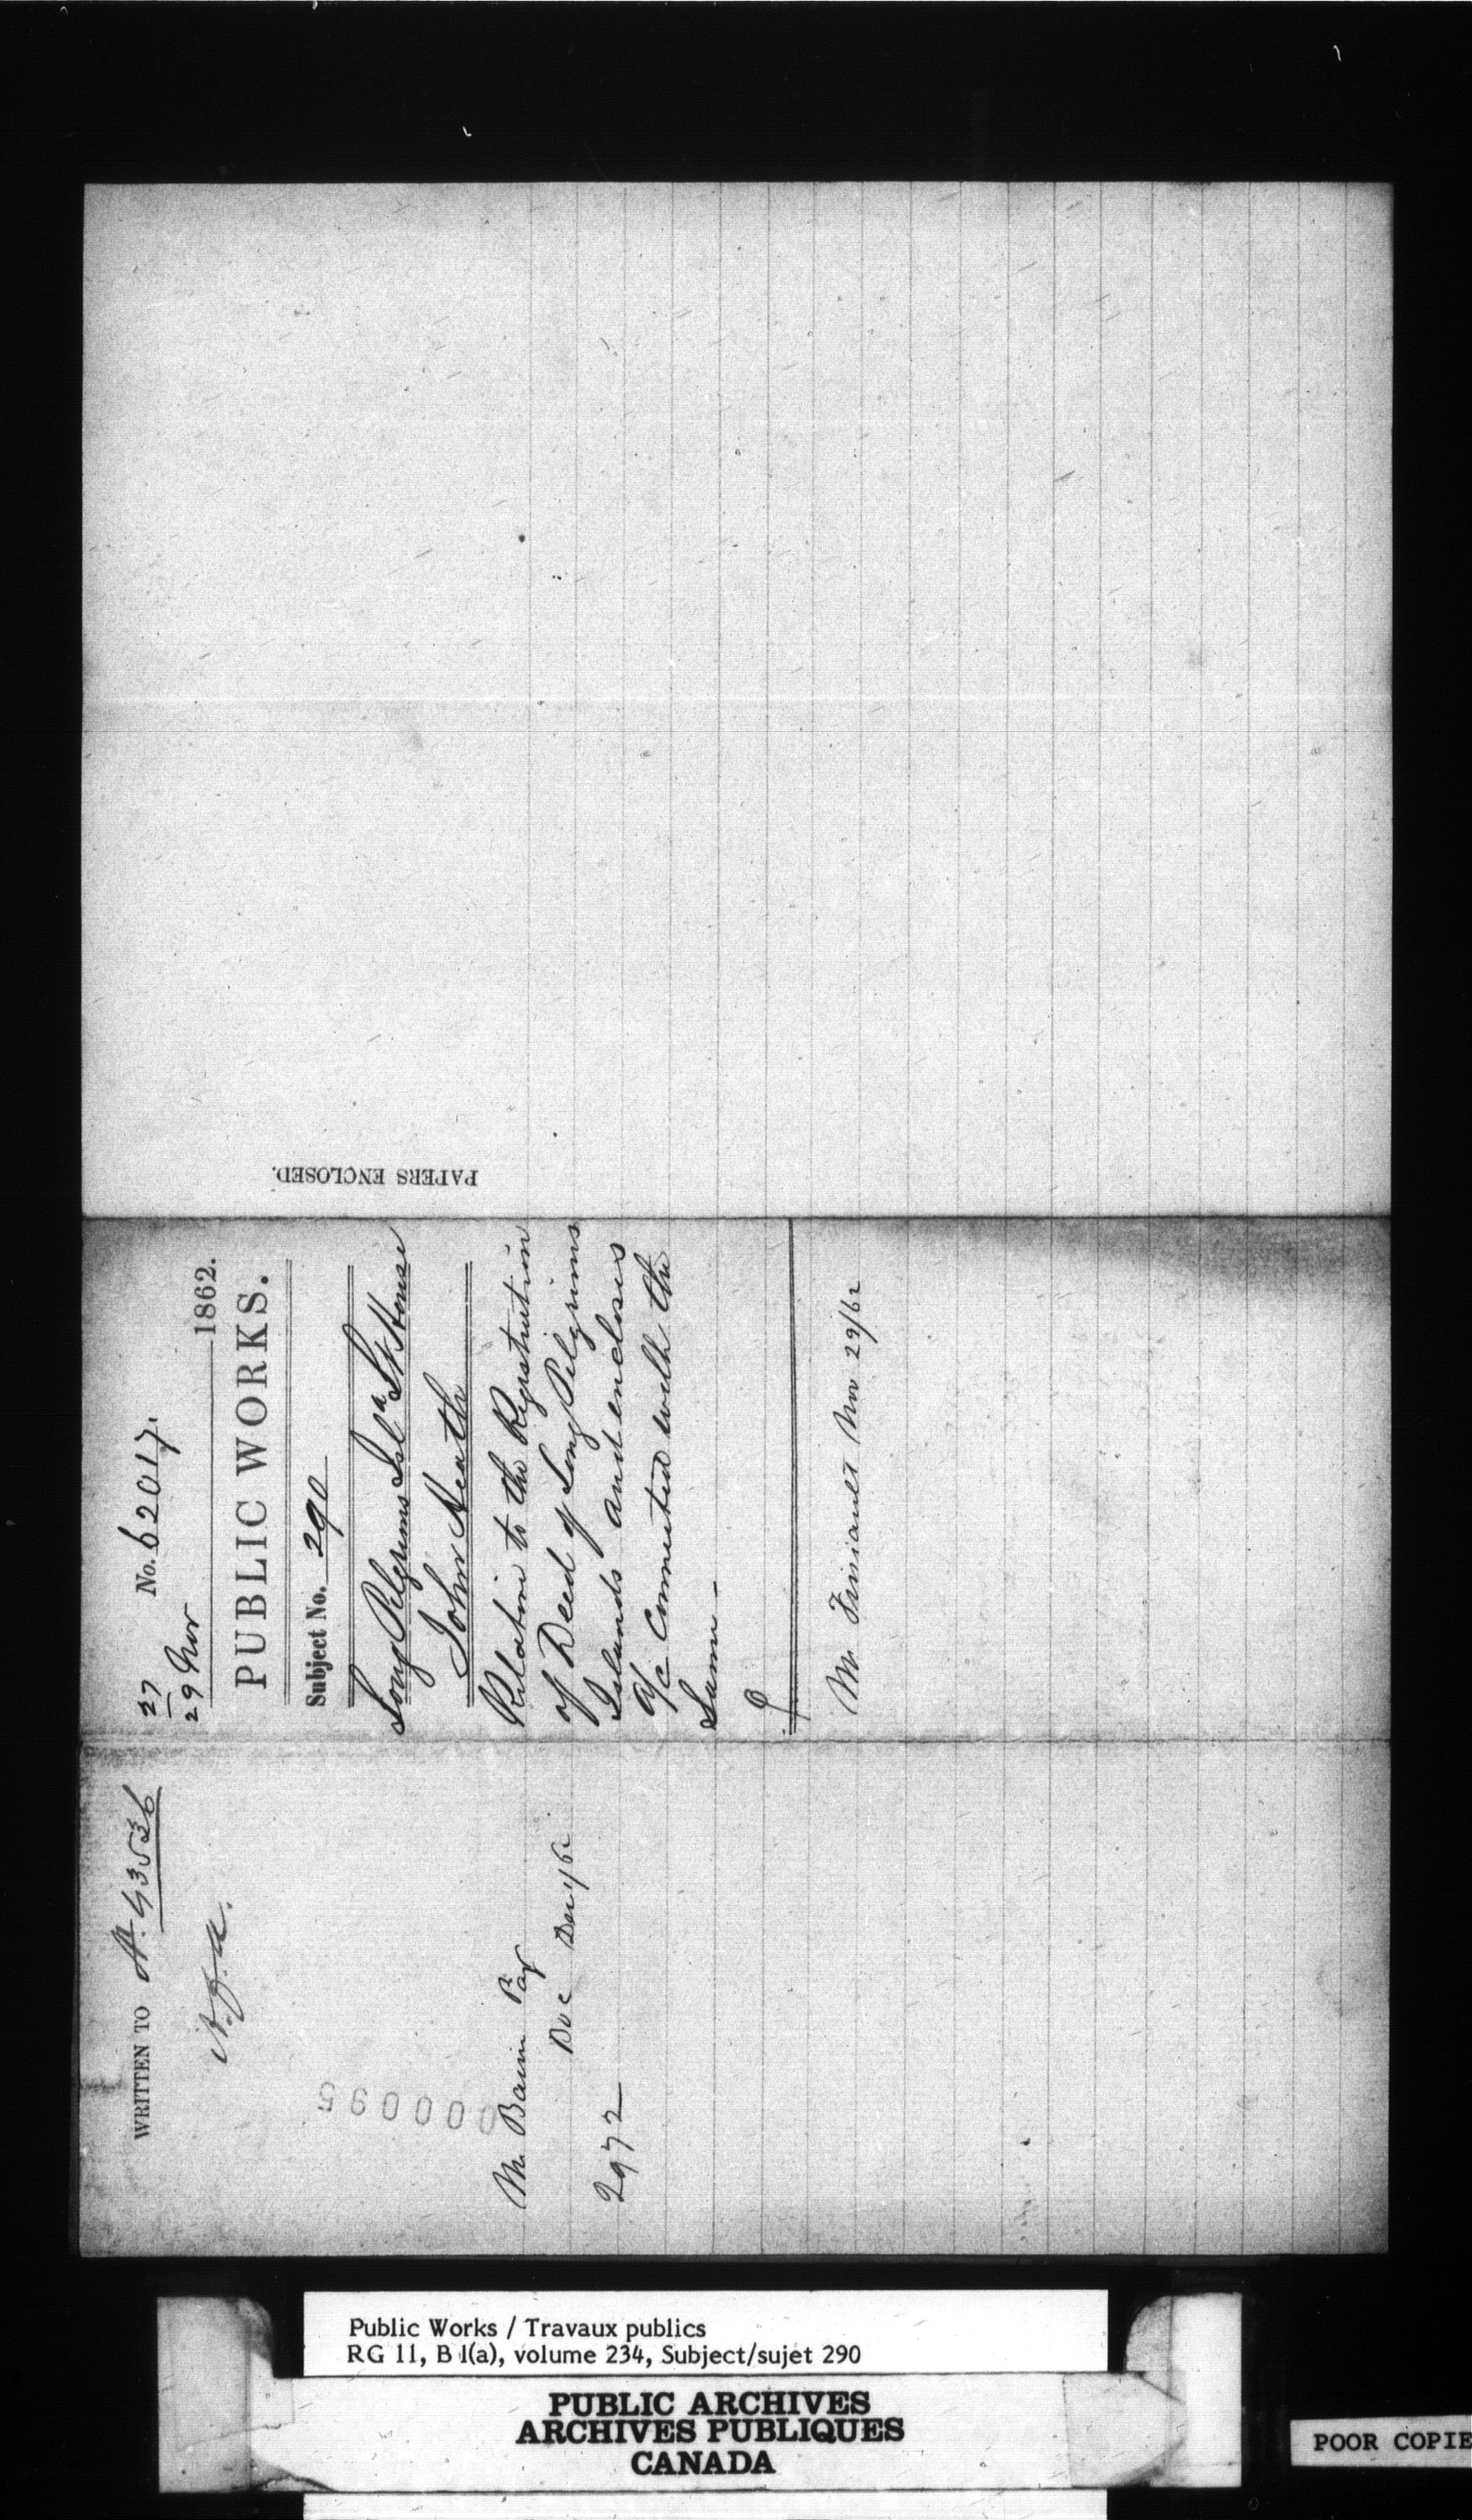 27 No. 62017.
29 Nov 1862.
PUBLIC WORKS.
Subject No. 290
Long Pilgrims Isl<sup>d</sup> Lt House
John Heath
Relative to the Registration
of Deed of Long Pilgrims
Islands and encloses
a/c connected with the
Same -
Mr Nov 29/62
PAPERS ENCLOSED.
WRITTEN TO
Mr Bain Pay
Doc Dec 1/62
2972
000095
Public Works / Travaux publics
RG 11, B 1(a), volume 234, Subject/sujet 290
PUBLIC ARCHIVES
ARCHIVES PUBLIQUES
CANADA
POOR COPIE